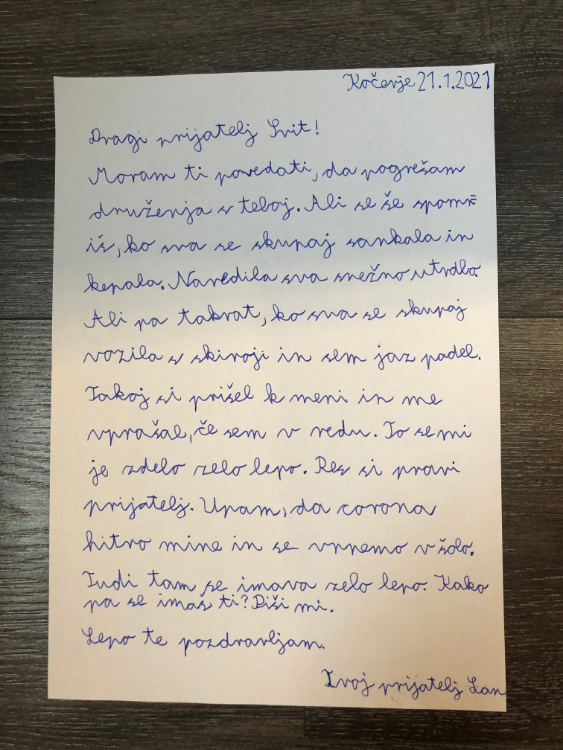 Kočevje 21.1.2021
Dragi prijatelj Svit!
Moram ti povedati, da pogrešam
druženja s teboj. Ali se še spomn=
iš, ko sva se skupaj sankala in
kepala. Naredila sva snežno utrdbo.
Ali pa takrat, ko sva se skupaj
vozila s skiroji in sem jaz padel.
Takoj si prišel k meni in me
vprašal, če sem v redu. To se mi
je zdelo zelo lepo. Res si pravi
prijatelj. Upam, da corona
hitro mine in se vrnemo v šolo.
Tudi tam se imava zelo lepo. Kako
pa se imaš ti? Piši mi.
Lepo te pozdravljam.
Tvoj prijatelj Lan